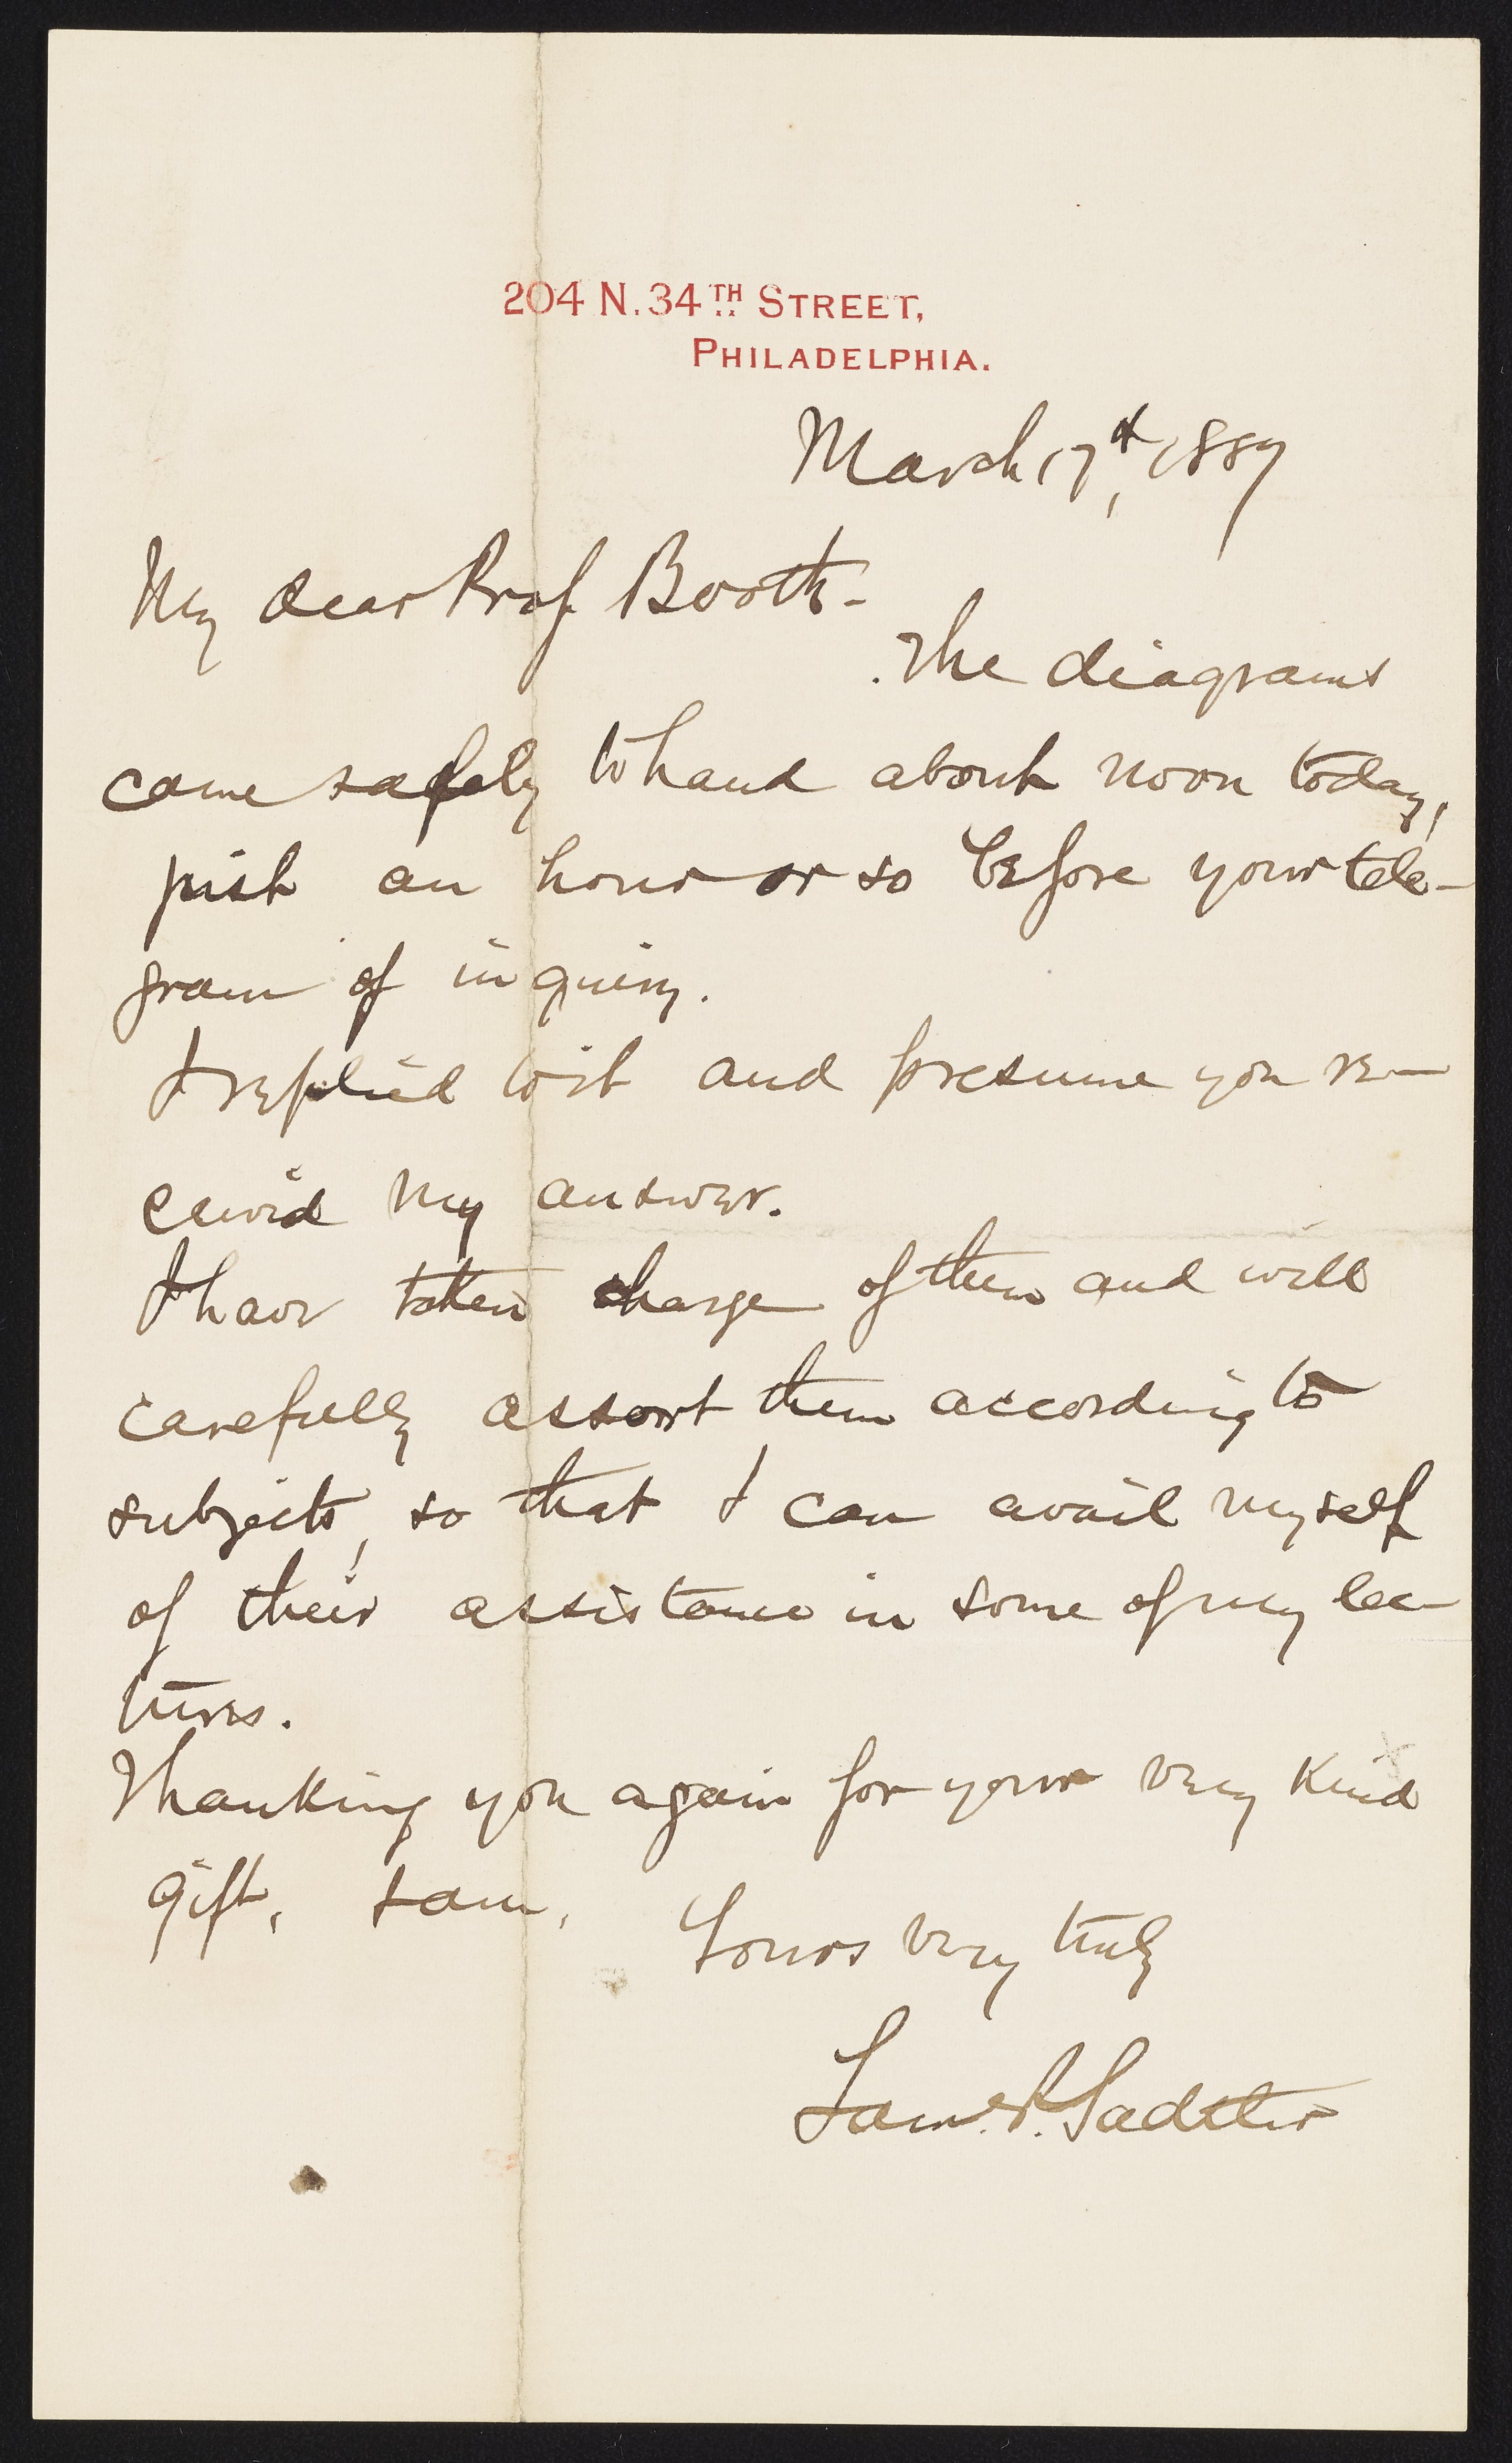 204 N. 34TH STREET,
PHILADELPHIA.
March 17th, 1887
My dear Prof Booth-
The diagrams
came safely to hand about noon today,
just an hour or so before your tele-
gram of inquiry.
I replied to it and presume you re-
ceived my answer.
I have taken charge of them and will
carefully assort them according to
subjects, so that I can avail myself
of their assistance in some of my lec-
tures.
Thanking you again for your very kind
gift, I am,
Yours very truly
Sam'l P. Sadtler